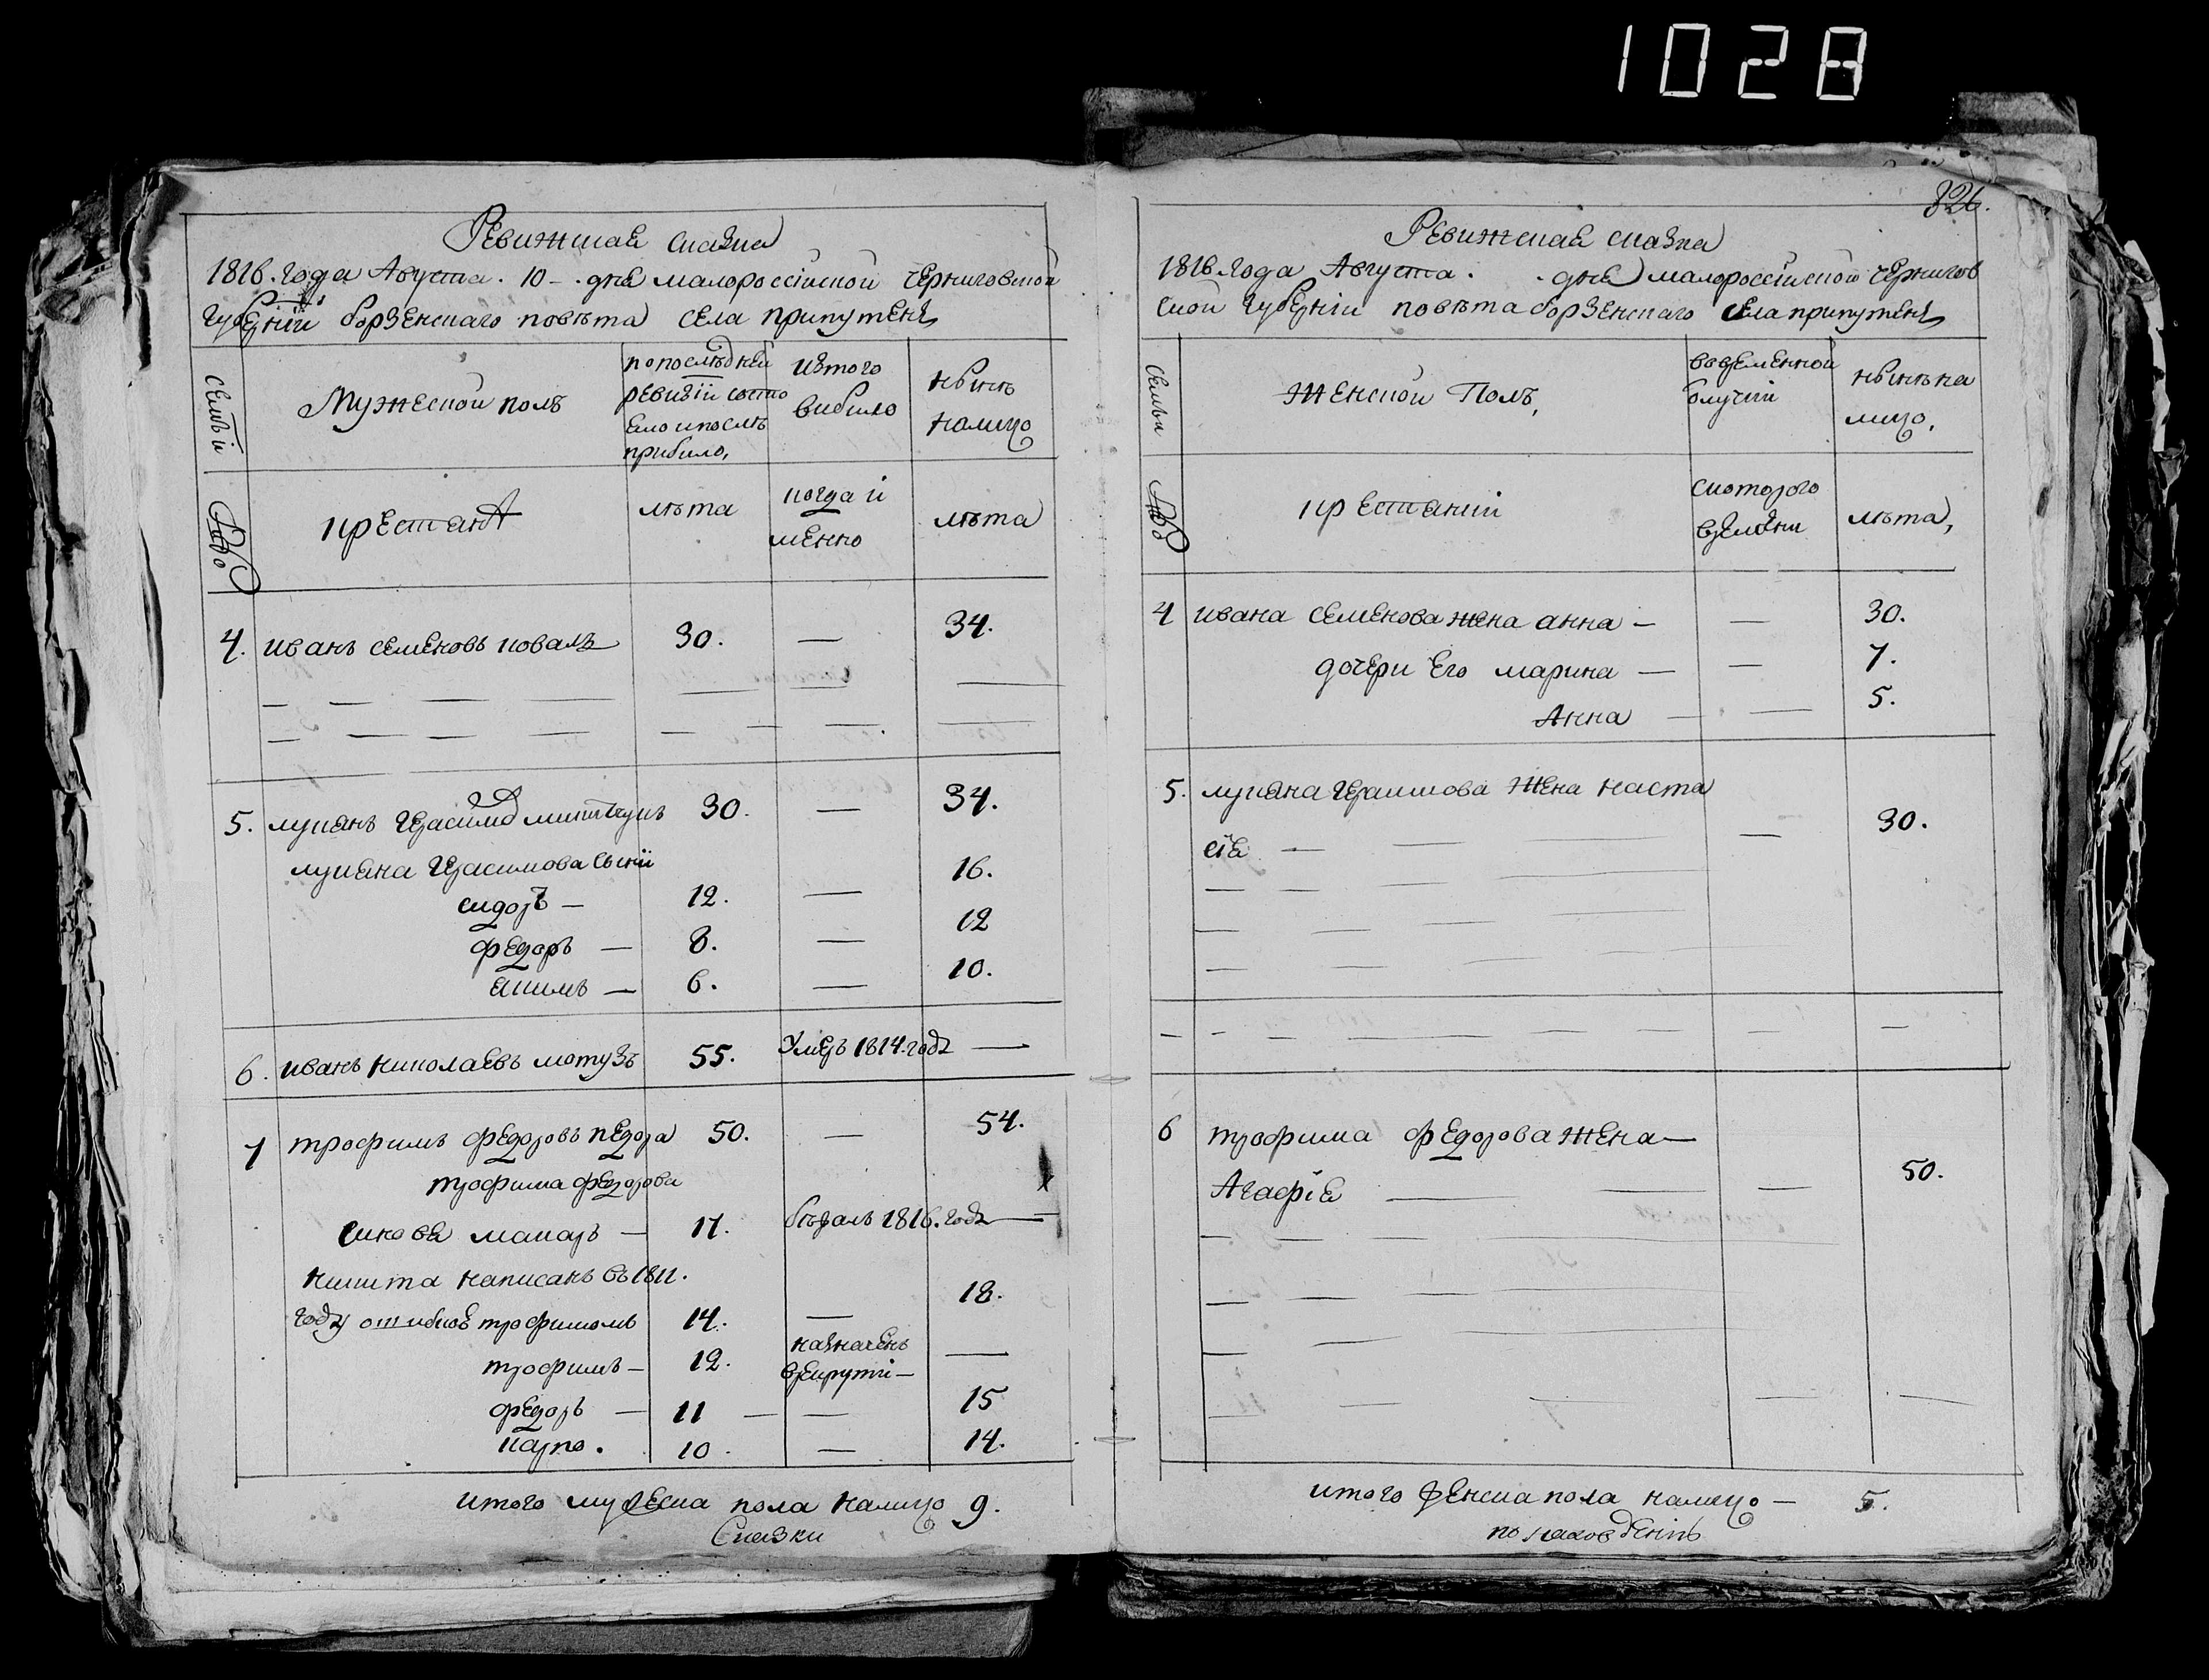 1028
826.
Ревижская сказка
1816. года Августа. 10 - . дня малороссійской черниговской
губерніи борзенскаго повѣта села припутеня
семьи
Мужеской полъ
по послѣдней
ревизіи состо
яло и послѣ
прибило,
изъ того
вибило
нынѣ
налицо
№
крестьянѣ
лѣта
когда и
менно
лѣта
4. иванъ семеновъ коваль 30. — 34.
5. лукянъ герасимовъ 30. — 34.
лукяна герасимова сыни
сидоръ — 12. — 16.
федоръ — 8. — 12
якимъ — 6. — 10.
6. иванъ николаевъ мотузъ 55. Умеръ 1814. годъ —
7 трофимъ федоровъ педора 50. — 54.
трофима федорова
синовя макаръ — 17. бѣжалъ 1816. года —
никита написанъ въ 1811.
году ошибкоя трофимомъ 14. — 18.
трофимъ — 12. назначенъ
врекрути — —
федоръ — 11 — — 15
карпо. 10. — 14.
итого мужеска пола налицо 9.
Сказки
Ревижская сказка
1816. года Августа. . дня малороссійской чернигов
ской губерніи повѣта борзенскаго села припутеня
семьи
Женской Полъ,
вовременной
отлучкѣ
нынѣ на
лицо.
№
крестьянкі
скоторого
времѣни
лѣта,
4 ивана семенова жена анна — — 30.
дочери его марина — — 7.
Анна — — 5.
5. лукяна герасимова жена наста
сія — — 30.
6 трофима федорова жена —
Агафія — — 50.
итого женска пола налицо — 5.